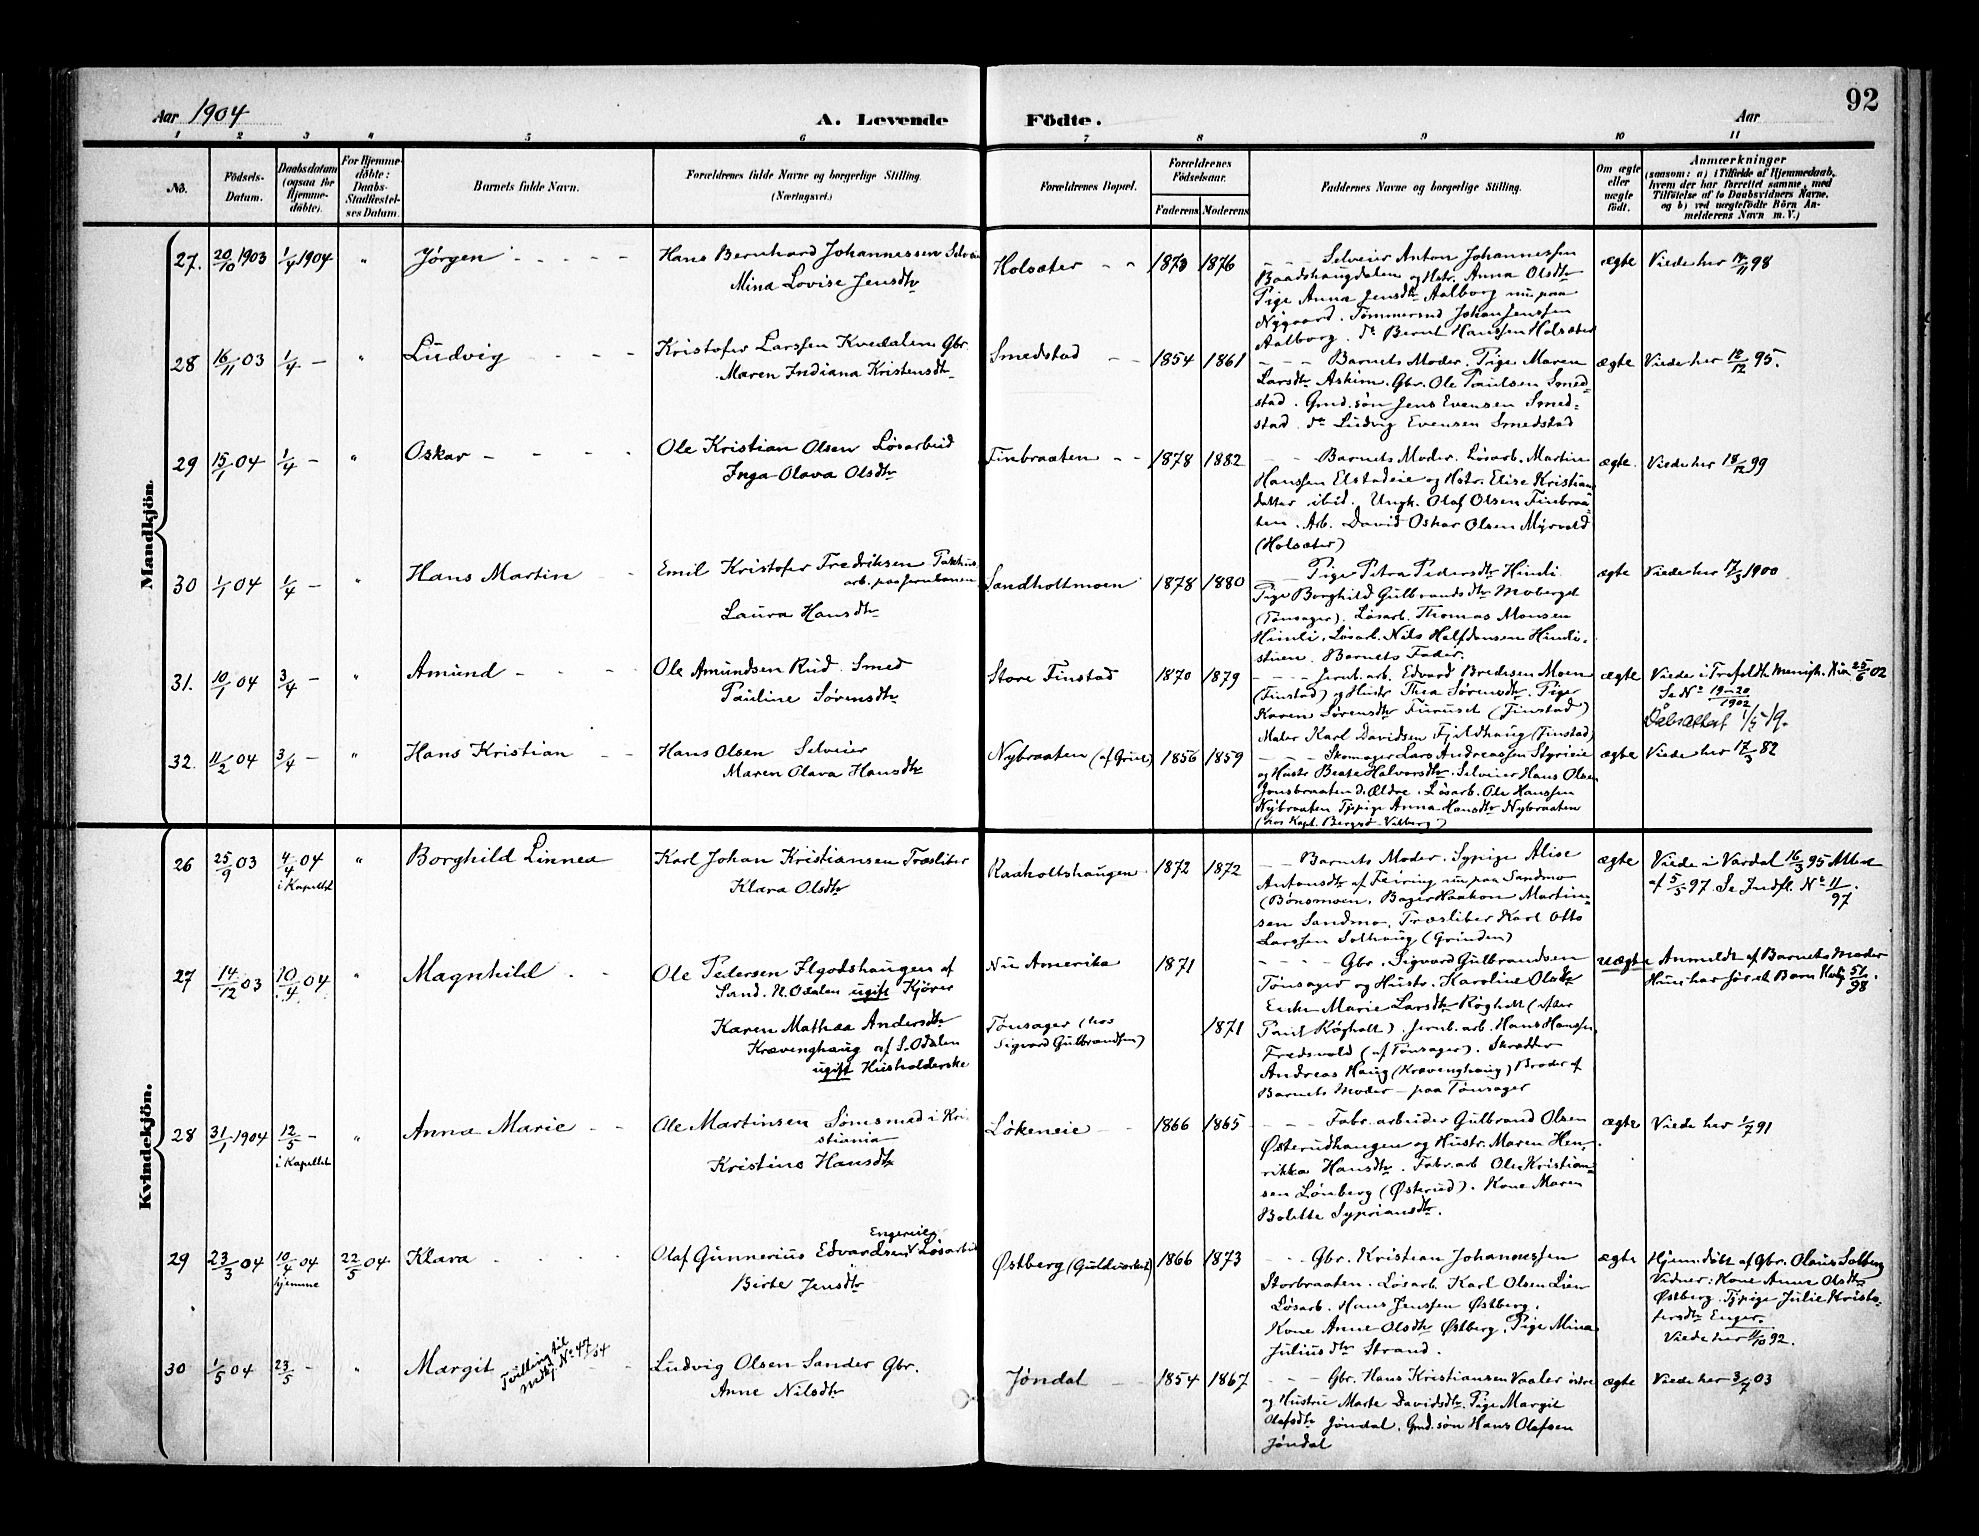 92
Aar 1904
A. Levende Födte.
Aar
1 2 3 " 5 6 7 8 9 10 11
No.
Födsels-
Datum.
Daabsdatum
(ogsaa for
Hjemme-
döbte).
For Hjemme-
döbte:
Daabs-
Stadfæstel-
ses Datum.
Barnets fulde Navn.
Forældrenes fulde Navne og borgerlige Stilling.
(Næringsvei.)
Forældrenes Bopæl.
Forældrenes
Födselsaar.
Faderens Moderens
Faddernes Navne og borgerlige Stilling.
Om ægte
eller
uægte
födt.
Anmærkninger
(saasom: a) i Tilfælde af Hjemmedaab,
hvem der har forrettet samme, med
Tilföielse af to Daabsvidners Navne,
og b) ved uægtefödte Börn An-
melderens Navn m. V.)
Mandkjön.
27. 20/10 1903 1/4 1904 " Jörgen
Hans Bernhard Johannessen Selveier
Mina Lovise Jensdtr
Holsæter 1873 1876
Selveier Anton Johannessen
Baadshaugdalen og Hstr. Anna Olsdtr
Pige Anna Jensdtr Aalborg nu paa
Nygaard. Tømmermd Johan Jenssen
Aalborg. do Bernt Hanssen Holsæter
ægte Viede her 18/11 98
28 16/11 03 1/4 — " Ludvig
Kristofer Larssen Kvedalen Gbr.
Maren Indiana Kristensdtr
Smedstad 1854 1861
Barnets Moder. Pige Maren
Larsdtr Askim. Gbr. Ole Paulsen Smed-
stad. Gmd.søn Jens Evensen Smed-
stad. do Ludvig Evensen Smedstad
ægte Viede her 12/12 95.
29 15/1 04 1/4 — " Oskar
Ole Kristian Olsen Løsarbeid
Inga Olava Olsdtr
Finbraaten 1878 1882
Barnets Moder. Løsarb. Martin
Hanssen Elstadeie og Hstr. Elise Kristian-
datter ibid. Ungk. Olaf Olsen Finbraa-
ten. Arb. David Oskar Olsen Myrvold
(Holsæter)
ægte. Viede her 18/12 99
30 1/1 04 1/4 — " Hans Martin
Emil Kristofer Fredriksen Pakhus
arb. paa Jernbanen
Laura Hansdtr
Sandholtmoen 1878 1880
Pige Petra Pedersdtr Himli
Pige Borghild Gulbrandsdtr Moberget
(Tønsager). Løsarb. Thomas Monsen
Himli. Løsarb. Nils Halfdansen Himli-
stuen. Barnets Fader.
ægte Viede her 17/3 1900
31. 10/1 04 3/4 — " Amund
Ole Amundsen Rud. Smed
Pauline Sørensdtr
Store Finstad 1870 1879
Jernb. arb. Edvard Bredesen Moen
(Finstad) og Hustr. Thea Sørensdtr. Pige
Karen Sørensdtr Furuset (Finstad)
Maler Karl Davidsen Fjeldhaug (Finstad)
ægte Viede i Trefoldh. Menigh. Kria 25/6 02
Se No 19-20/1902
Dåbsattest 1/5-19.
32. 11/2 04 3/4 — " Hans Kristian
Hans Olsen Selveier
Maren Olava Hansdtr
Nybraaten (af Grue) 1856 1859
Skomager Lars Andreassen Styrieie
og Hustr Beate Halvorsdtr. Selveier Hans Olsen
Jonsbraaten d. Ældre. Løsarb. Ole Hanssen
Nybraaten Tjpige Anna Hansdtr Nybraaten
(hos Kapt. Bergsø. Vilberg)
ægte Viede her 17/3 82
Kvindekjön.
26 25/9 03 4/4 04 i Kapellet " Borghild Linnea
Karl Johan Kristiansen Træsliber
Klara Olsdtr
Raaholtshaugen 1872 1872
Barnets Moder. Sypige Alise
Antonsdtr af Feiring nu paa Sandmo
(Bønsmoen. Bager Haakon Martin-
sen Sandmo, Træsliber Karl Otto
Larssen Solhaug (Grinden)
ægte Viede i Vardal 16/3 95 Attest
af 5/5 97 Se Indfl. No 11/97.
27 14/12 03 10/4 04 " Magnhild
Ole Pedersen Flgodshaugen af
Sand. N. Odalen ugift Kjører
Karen Mathea Andersdtr
Krævenghaug af S. Odalen
ugift Husholderske
Nu Amerika 1871
Tønsager (hos
Sigvard Gulbrandsen) 1871
Gbr. Sigvard Gulbrandsen
Tønsager og Hustr. Karoline Olsdtr
Enke Marie Larsdtr Røgholt (efter
Paul Røgholt). Jernb.arb. Hans Hanssen
Fredsvold (af Tønsager). Skrædder
Andreas Haug (Krævenghaug) Broder af
Barnets Moder — paa Tønsager
uægte Anmeldt af Barnets Moder
Hun har før et Barn 51/98.
28 31/1 1904 12/5 — i Kapellet " Anna Marie
Ole Martinsen Sømsmed i Kri-
stiania
Kristine Hansdtr
Løkeneie 1866 1865
Fabr. arbeider Gulbrand Olsen
Østerudhaugen og Hustr. Maren Hen-
rikka Hansdtr. Fabr.arb Ole Kristian-
sen Lønberg (Østerud). Kone Maren
Bolette Sypriansdtr.
ægte Viede her 1/7 91
29 23/3 04 10/4 04 hjemme 22/5 04 Klara
Engereieg
Olaf Gunnerius Edvardsen V Løsarbeid
Birte Jensdtr
Østberg (Guldverket) 1866 1873
Gbr. Kristian Johannessen
Storbraaten. Løsarb. Karl Olsen Lien
Løsarb. Hans Jenssen Østberg.
Kone Anne Olsdtr Østberg. Pige Mina
Juliusdtr Strand.
ægte Hjemdöbt af Gbr. Olaus Solberg
Vidner: Kone Anne Olsdtr
Østberg. Tjpige Julie Kristo-
fersdtr Enger.
Viede her 11/10 92.
30 1/5 04 23/5 — " Margit Tvilling til
mdkj. No 47/04
Ludvig Olsen Sander Gbr.
Anne Nilsdtr
Jøndal 1854 1867
Gbr. Hans Kristiansen Vaaler østre
og Hustrue Marte Davidsdtr. Pige Margit
Olafsdtr Jøndal. Gmd.søn Hans Olafsen
Jøndal
ægte Viede her 3/7 03